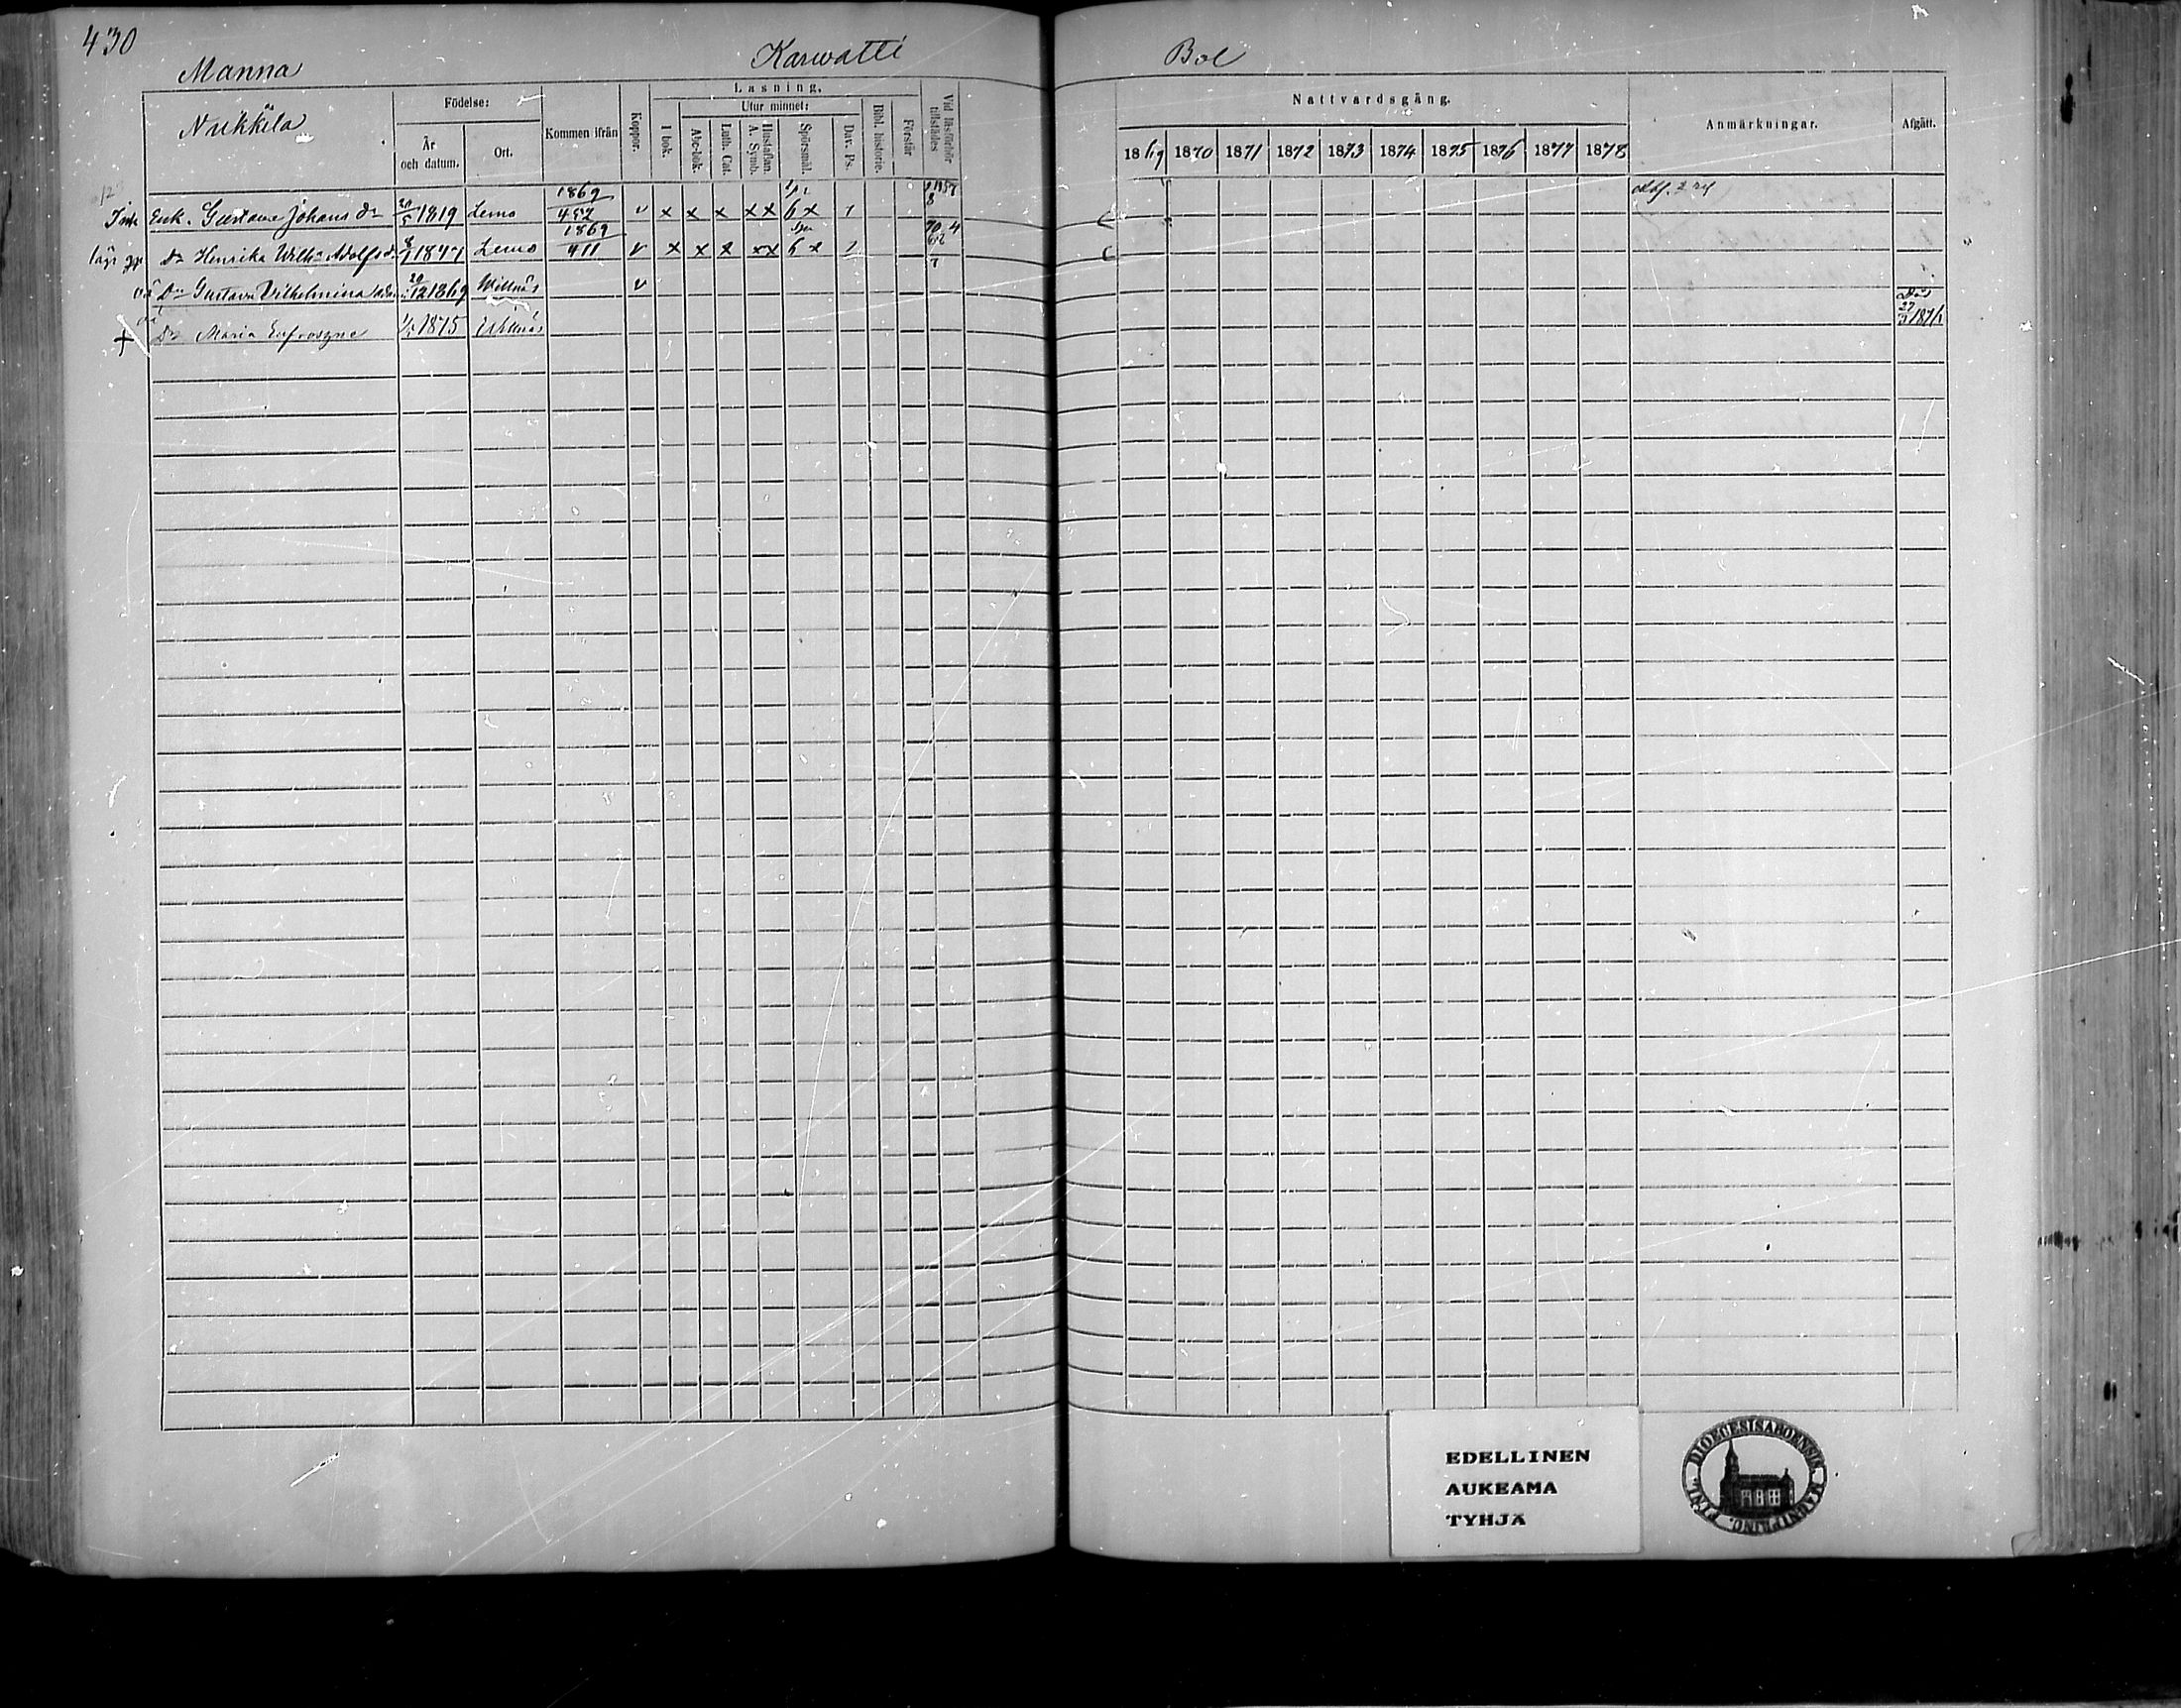 430
Manna Karwatti Bol
Nukkila
Födelse:
År och datum.
Ort.
Kommen ifrån
Koppor.
Läsning.
I bok.
Utur minnet:
Abc-bok.
Luth. Cat.
Hustaflan. A. Symb.
Spörsmål.
Dav. Ps.
Bibl. historie.
Förstår
Vid läsförhör tillstädes
Nattvardsgång.
1869 1870 1871 1872 1873 1874 1875 1876 1877 1878
Anmärkningar.
Afgått.
Enk. Gustava Johans dr 20/5 1819 Lemo 1869/452 v x x x x x 6 x 1
dr Henrika Wilh:a Adolfs dr 1847 Lemo 1869/411 v x x x x x 6 x
Dr Gustava Vilhelmina 20/12 1869 Willnäs v
+ Dr Maria Eufrosyne 1875 Willnäs Död 27/ 1876
EDELLINEN
AUKEAMA
TYHJÄ
DIOECESIS ABOENSIS MAGNI PRINC. FINL.